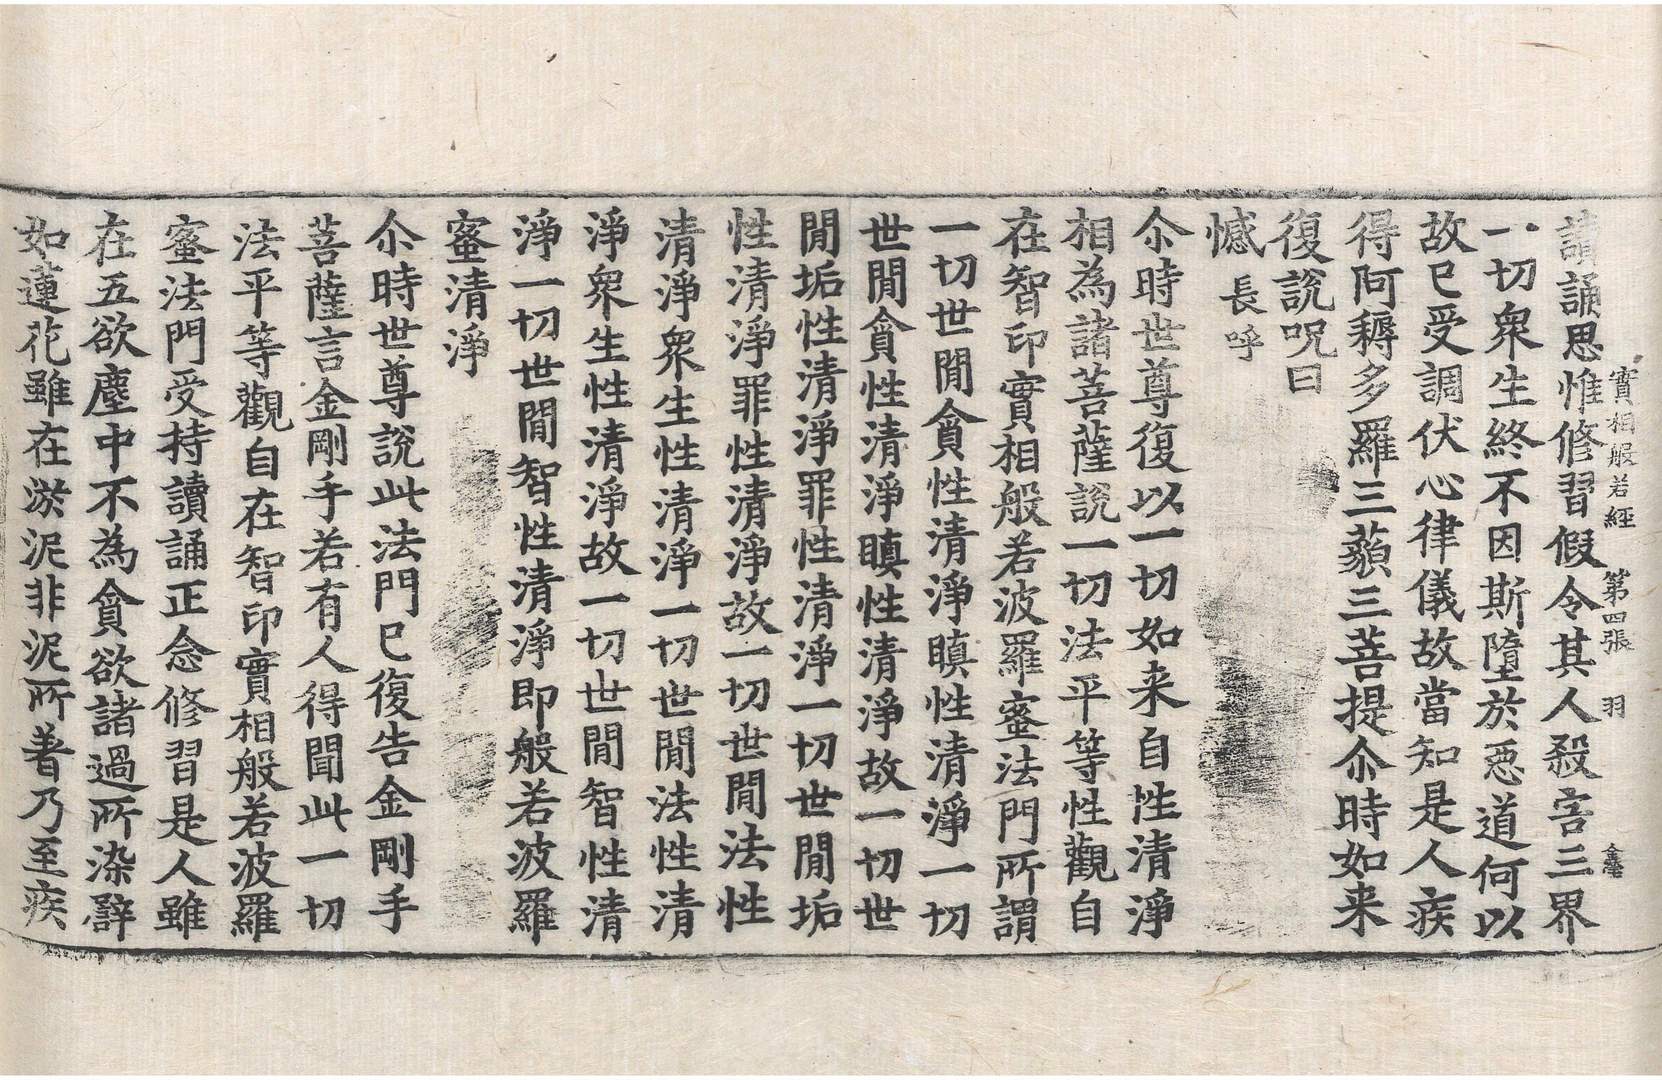 實相般若經 第四張 羽
讀誦思惟修習假令其人殺害三界
一切衆生終不因斯墮於惡道何以
故已受調伏心律儀故當知是人疾
得阿耨多羅三藐三菩提尒時如来
復說呪曰
憾 長呼
尒時世尊復以一切如来自性清淨
相為諸菩薩說一切法平等性觀自
在智印實相般若波羅蜜法門所謂
一切世閒貪性清淨瞋性清淨一切
世閒貪性清淨瞋性清淨故一切世
閒垢性清淨罪性清淨一切世閒垢
性清淨罪性清淨故一切世閒法性
清淨衆生性清淨一切世閒法性清
淨衆生性清淨故一切世閒智性清
淨一切世閒智性清淨即般若波羅
蜜清淨
尒時世尊說此法門已復告金剛手
菩薩言金剛手若有人得聞此一切
法平等觀自在智印實相般若波羅
蜜法門受持讀誦正念修習是人雖
在五欲塵中不為貪欲諸過所染辟
如蓮花雖在淤泥非泥所著乃至疾